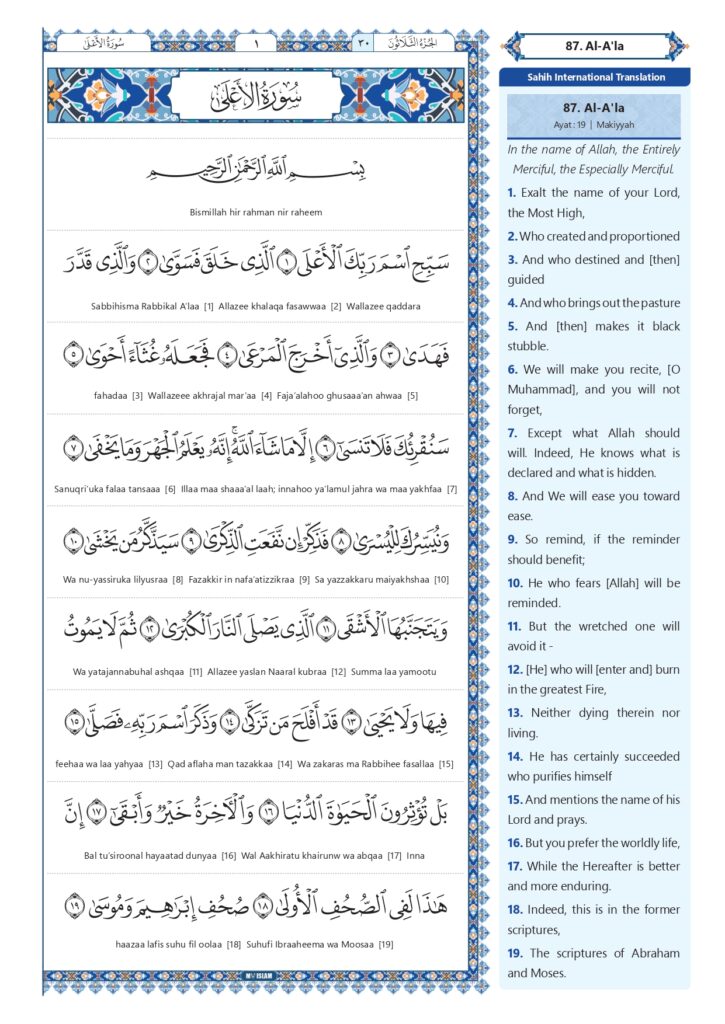 سُورَةُ الأَعْلَىٰ
١
٣٠
الجُزْءُ الثَّلَاثُونَ
سُورَةُ الأَعْلَىٰ
بِسْمِ ٱللَّهِ ٱلرَّحْمَٰنِ ٱلرَّحِيمِ
Bismillah hir rahman nir raheem
سَبِّحِ ٱسْمَ رَبِّكَ ٱلْأَعْلَى ١ ٱلَّذِى خَلَقَ فَسَوَّىٰ ٢ وَٱلَّذِى قَدَّرَ
Sabbihisma Rabbikal A'laa [1] Allazee khalaqa fasawwaa [2] Wallazee qaddara
فَهَدَىٰ ٣ وَٱلَّذِىٓ أَخْرَجَ ٱلْمَرْعَىٰ ٤ فَجَعَلَهُۥ غُثَآءً أَحْوَىٰ ٥
fahadaa [3] Wallazeee akhrajal mar'aa [4] Faja'alahoo ghusaaa'an ahwaa [5]
سَنُقْرِئُكَ فَلَا تَنسَىٰٓ ٦ إِلَّا مَا شَآءَ ٱللَّهُ ۚ إِنَّهُۥ يَعْلَمُ ٱلْجَهْرَ وَمَا يَخْفَىٰ ٧
Sanuqri'uka falaa tansaaa [6] Illaa maa shaaa'al laah; innahoo ya'lamul jahra wa maa yakhfaa [7]
وَنُيَسِّرُكَ لِلْيُسْرَىٰ ٨ فَذَكِّرْ إِن نَّفَعَتِ ٱلذِّكْرَىٰ ٩ سَيَذَّكَّرُ مَن يَخْشَىٰ ١٠
Wa nu-yassiruka lilyusraa [8] Fazakkir in nafa'atizzikraa [9] Sa yazzakkaru maiyakhshaa [10]
وَيَتَجَنَّبُهَا ٱلْأَشْقَى ١١ ٱلَّذِى يَصْلَى ٱلنَّارَ ٱلْكُبْرَىٰ ١٢ ثُمَّ لَا يَمُوتُ
Wa yatajannabuhal ashqaa [11] Allazee yaslan Naaral kubraa [12] Summa laa yamootu
فِيهَا وَلَا يَحْيَىٰ ١٣ قَدْ أَفْلَحَ مَن تَزَكَّىٰ ١٤ وَذَكَرَ ٱسْمَ رَبِّهِۦ فَصَلَّىٰ ١٥
feehaa wa laa yahyaa [13] Qad aflaha man tazakkaa [14] Wa zakaras ma Rabbihee fasallaa [15]
بَلْ تُؤْثِرُونَ ٱلْحَيَوٰةَ ٱلدُّنْيَا ١٦ وَٱلْأَخِرَةُ خَيْرٌ وَأَبْقَىٰٓ ١٧ إِنَّ
Bal tu'siroonal hayaatad dunyaa [16] Wal Aakhiratu khairunw wa abqaa [17] Inna
هَٰذَا لَفِى ٱلصُّحُفِ ٱلْأُولَىٰ ١٨ صُحُفِ إِبْرَٰهِيمَ وَمُوسَىٰ ١٩
haazaa lafis suhu fil oolaa [18] Suhufi Ibraaheema wa Moosaa [19]
MY ISLAM
87. Al-A'la
Sahih International Translation
87. Al-A'la
Ayat : 19 | Makiyyah
In the name of Allah, the Entirely
Merciful, the Especially Merciful.
1. Exalt the name of your Lord,
the Most High,
2. Who created and proportioned
3. And who destined and [then]
guided
4. And who brings out the pasture
5. And [then] makes it black
stubble.
6. We will make you recite, [O
Muhammad], and you will not
forget,
7. Except what Allah should
will. Indeed, He knows what is
declared and what is hidden.
8. And We will ease you toward
ease.
9. So remind, if the reminder
should benefit;
10. He who fears [Allah] will be
reminded.
11. But the wretched one will
avoid it -
12. [He] who will [enter and] burn
in the greatest Fire,
13. Neither dying therein nor
living.
14. He has certainly succeeded
who purifies himself
15. And mentions the name of his
Lord and prays.
16. But you prefer the worldly life,
17. While the Hereafter is better
and more enduring.
18. Indeed, this is in the former
scriptures,
19. The scriptures of Abraham
and Moses.